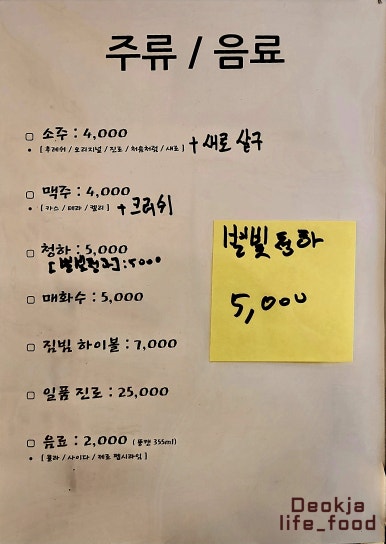 주류 / 음료
소주 : 4,000
[ 후레쉬 / 오리지널 / 진로 / 처음처럼 / 새로 ] + 새로 살구
맥주 : 4,000
[ 카스 / 테라 / 켈리 ] + 크러쉬
청하 : 5,000
[별빛청하] : 5000
매화수 : 5,000
짐빔 하이볼 : 7,000
일품 진로 : 25,000
음료 : 2,000 ( 뚱캔 355ml)
[ 콜라 / 사이다 / 제로 펩시라임 ]
별빛청하
5,000
Deokja
life_food